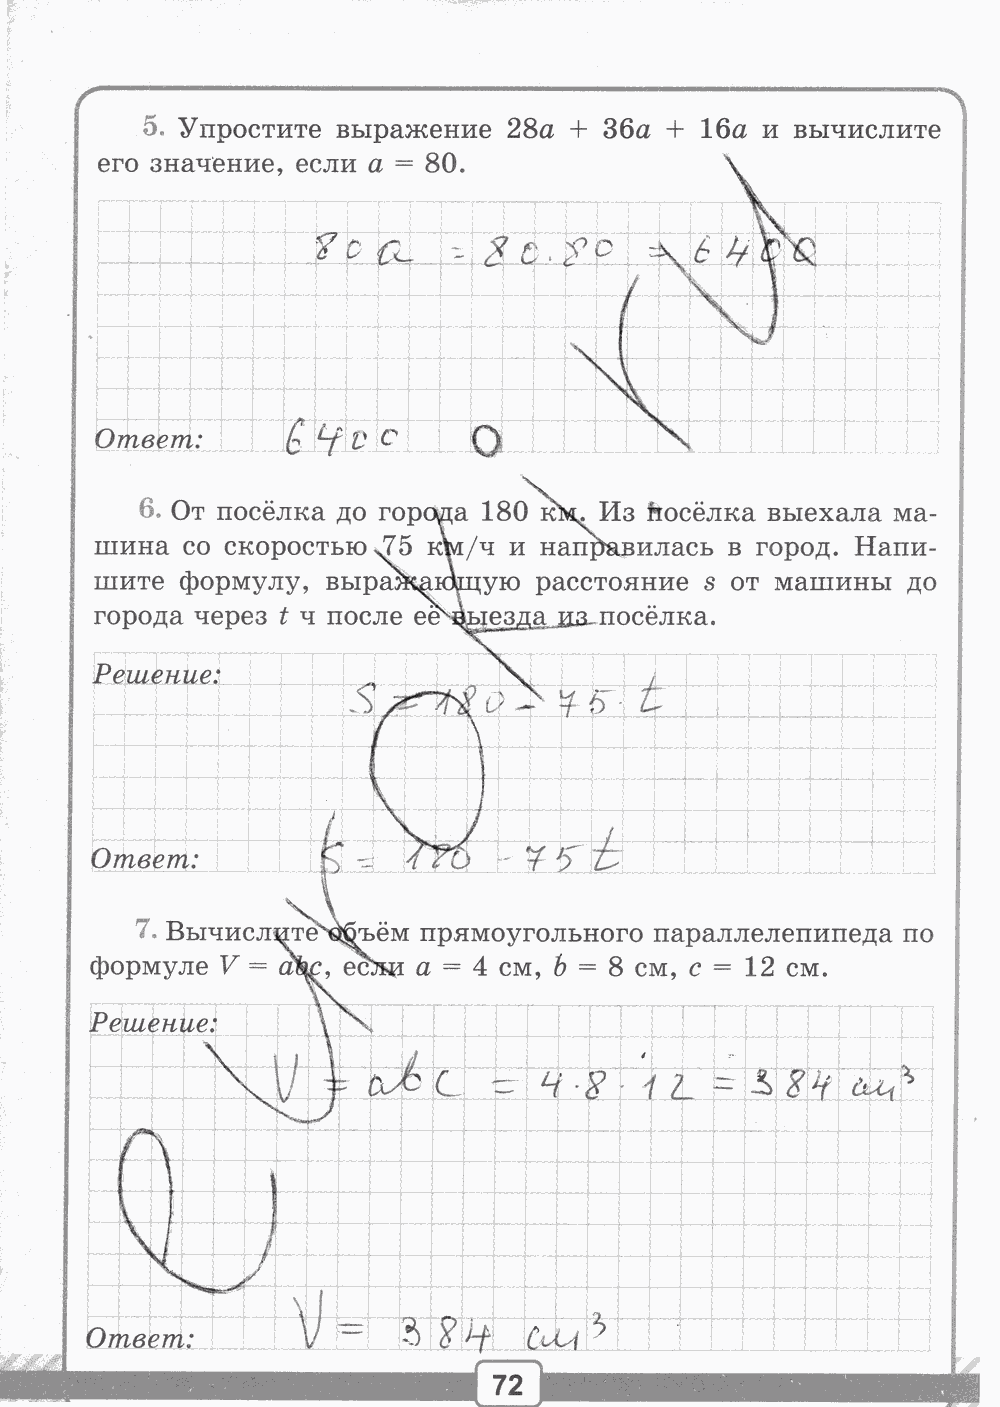 5. Упростите выражение 28a + 36a + 16a и вычислите
его значение, если a = 80.
80a = 80·80 = 6400
Ответ: 6400
6. От посёлка до города 180 км. Из посёлка выехала ма-
шина со скоростью 75 км/ч и направилась в город. Напи-
шите формулу, выражающую расстояние s от машины до
города через t ч после её выезда из посёлка.
Решение:
S = 180 - 75·t
Ответ: S = 180 - 75t
7. Вычислите объём прямоугольного параллелепипеда по
формуле V = abc, если a = 4 см, b = 8 см, c = 12 см.
Решение:
V = abc = 4·8·12 = 384 см³
Ответ: V = 384 см³
72